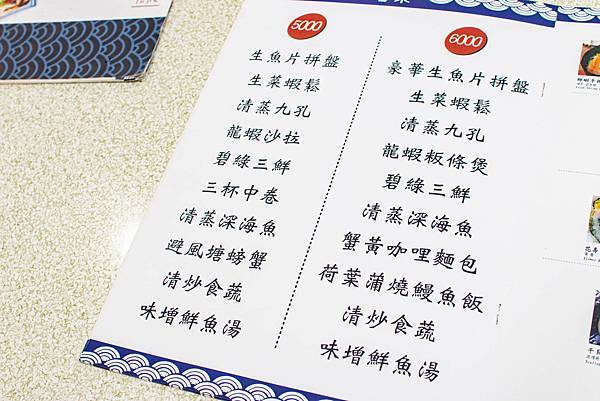 5000
生魚片拼盤
生菜蝦鬆
清蒸九孔
龍蝦沙拉
碧綠三鮮
三杯中卷
清蒸深海魚
避風塘螃蟹
清炒食蔬
味增鮮魚湯
6000
豪華生魚片拼盤
生菜蝦鬆
清蒸九孔
龍蝦粄條煲
碧綠三鮮
清蒸深海魚
蟹黃咖哩麵包
荷葉蒲燒鰻魚飯
清炒食蔬
味增鮮魚湯